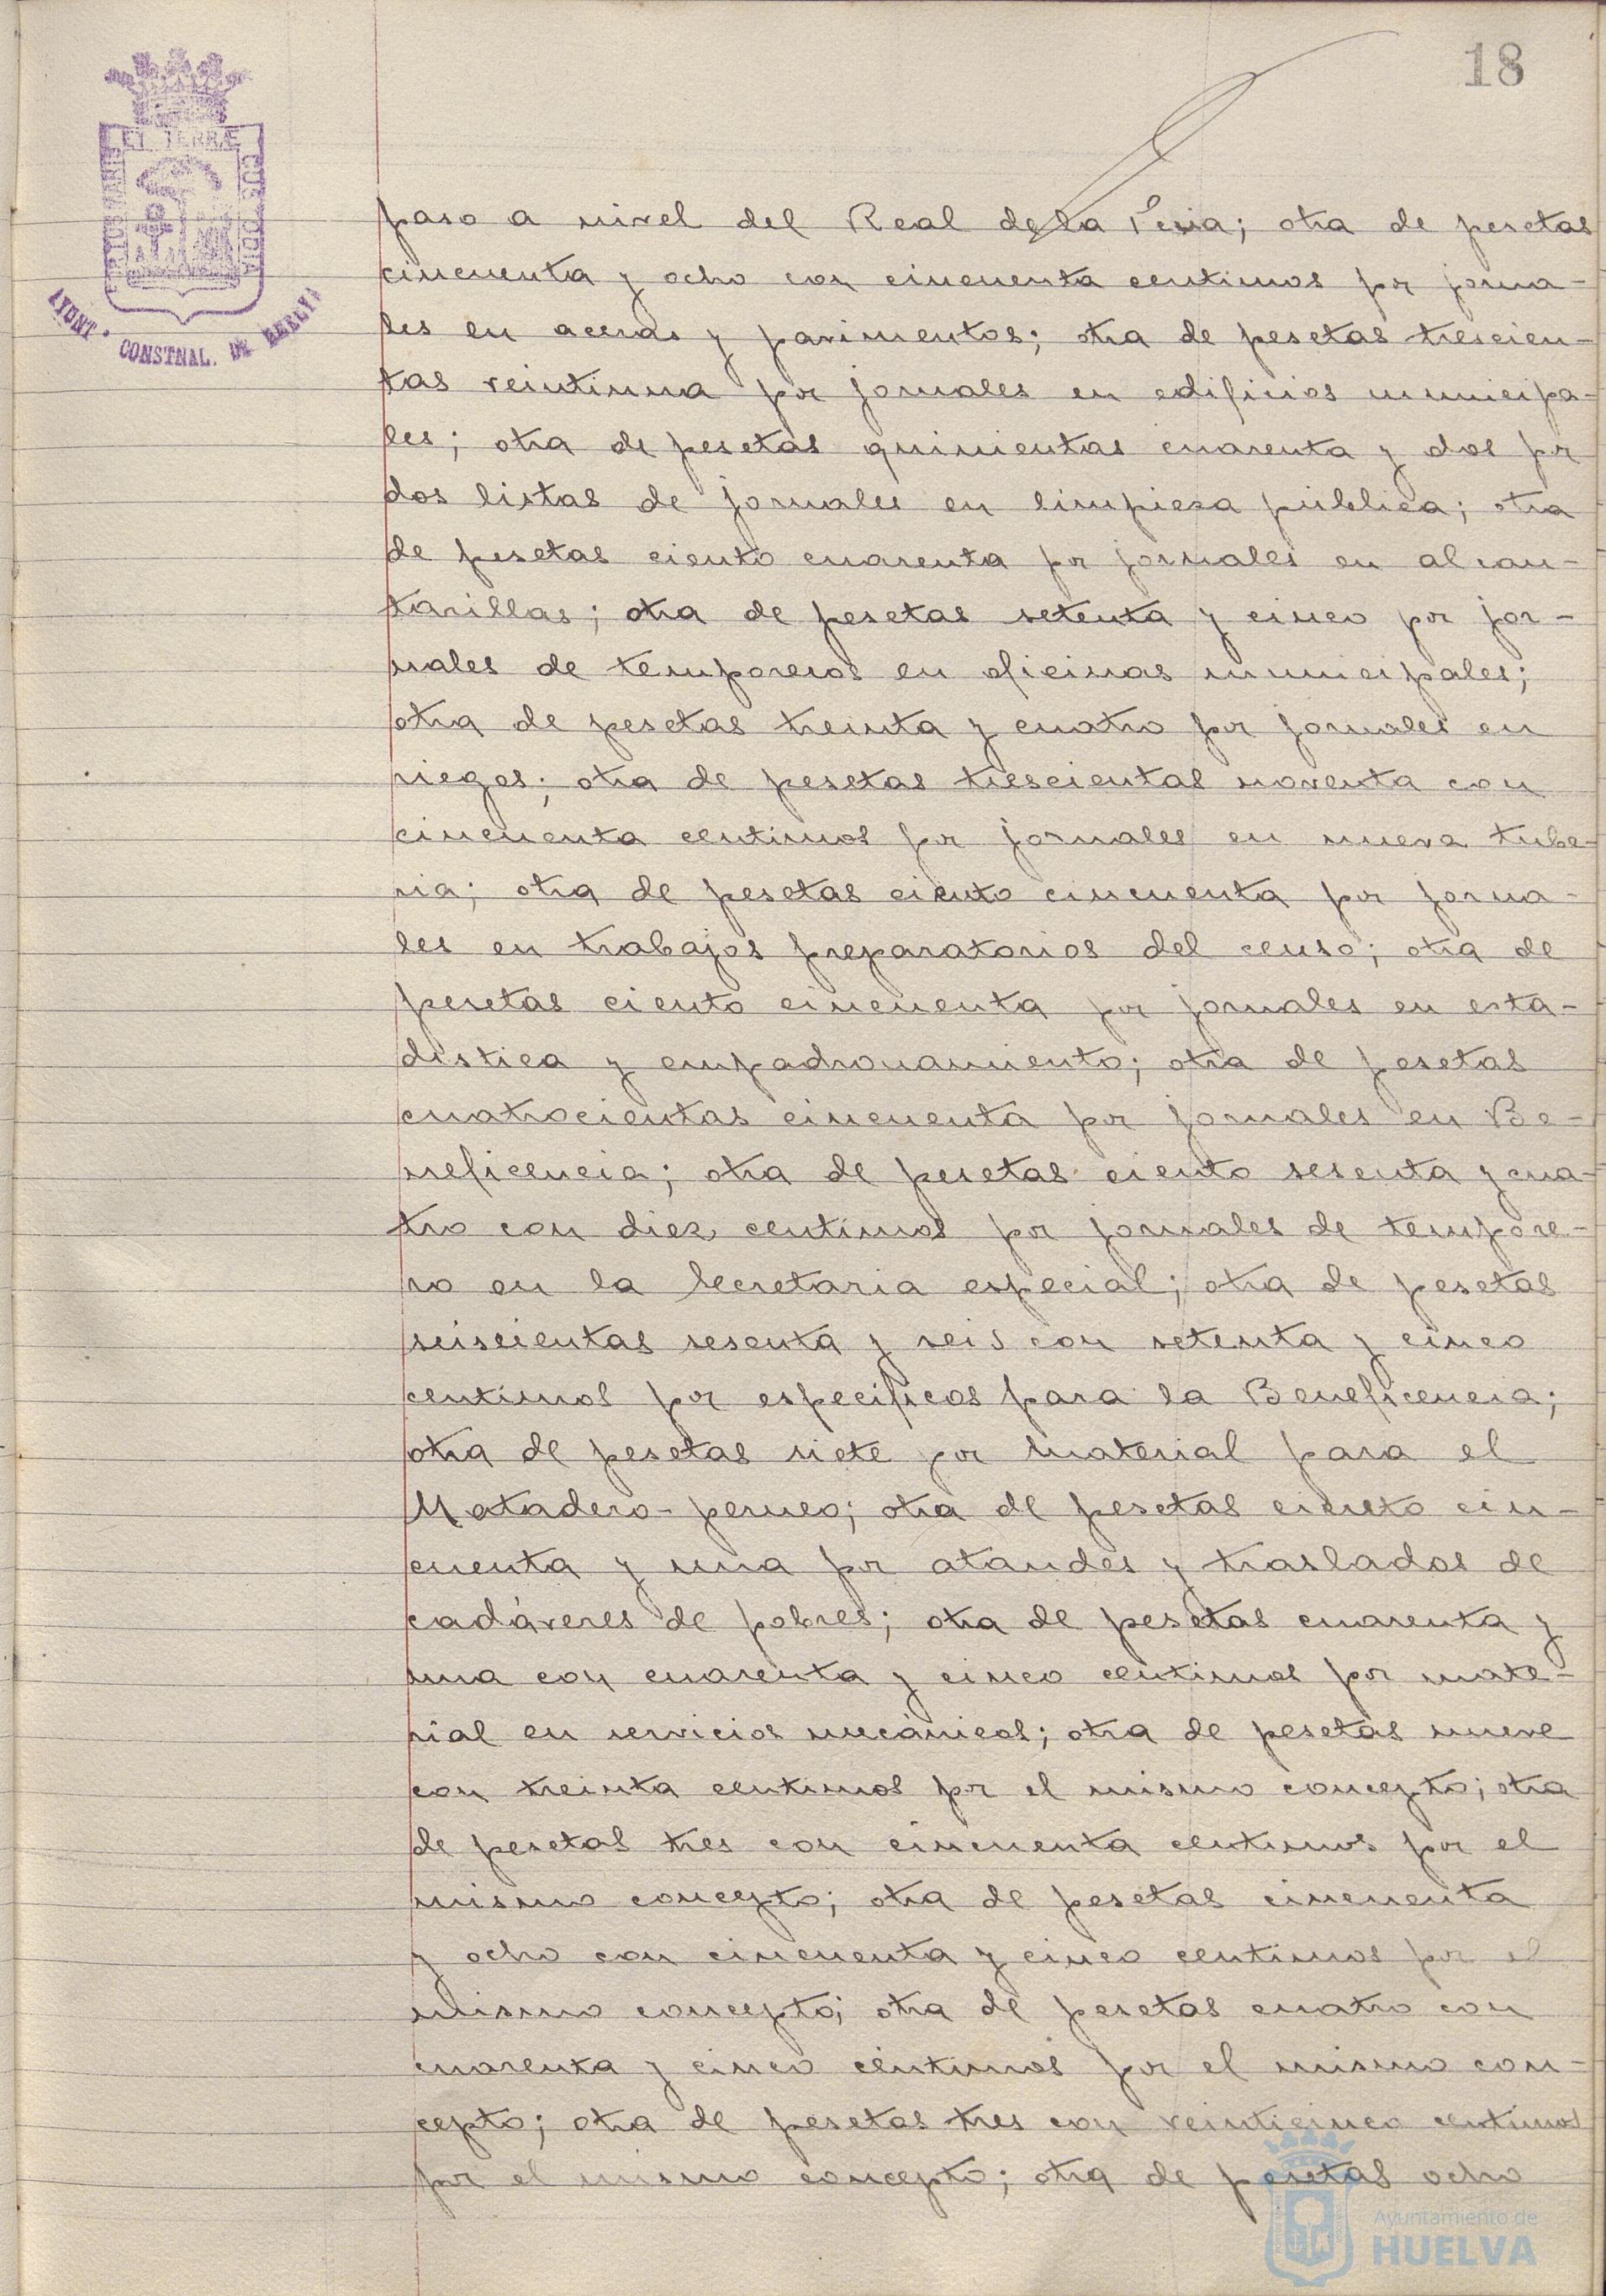 18
PORTUS MARIS ET TERRÆ CUSTODIA
AYUNT. CONSTNAL. DE HUELVA
paso a nivel del Real de la Feria; otra de pesetas
cincuenta y ocho con cincuenta centimos por jorna-
les en aceras y pavimentos; otra de pesetas trescien-
tas veintiuna por jornales en edificios municipa-
les; otra de pesetas quinientas cuarenta y dos por
dos listas de jornales en limpieza pública; otra
de pesetas ciento cuarenta por jornales en alcan-
tarillas; otra de pesetas setenta y cinco por jor-
nales de temporeros en oficinas municipales;
otra de pesetas treinta y cuatro por jornales en
riegos; otra de pesetas trescientas noventa con
cincuenta centimos por jornales en nueva tube-
ria; otra de pesetas ciento cincuenta por jorna-
les en trabajos preparatorios del censo; otra de
pesetas ciento cincuenta por jornales en esta-
distica y empadronamiento; otra de pesetas
cuatrocientas cincuenta por jornales en Be-
neficencia; otra de pesetas ciento sesenta y cua-
tro con diez centimos por jornales de tempore-
ro en la Secretaria especial; otra de pesetas
seiscientas sesenta y seis con setenta y cinco
centimos por especificos para la Beneficencia;
otra de pesetas siete por material para el
Matadero-perneo; otra de pesetas ciento cin-
cuenta y una por ataudes y traslados de
cadáveres de pobres; otra de pesetas cuarenta y
una con cuarenta y cinco centimos por mate-
rial en servicios mecánicos; otra de pesetas nueve
con treinta centimos por el mismo concepto; otra
de pesetas tres con cincuenta centimos por el
mismo concepto; otra de pesetas cincuenta
y ocho con cincuenta y cinco centimos por el
mismo concepto; otra de pesetas cuatro con
cuarenta y cinco céntimos por el mismo con-
cepto; otra de pesetas tres con veinticinco centimos
por el mismo concepto; otra de pesetas ocho
Ayuntamiento de
HUELVA